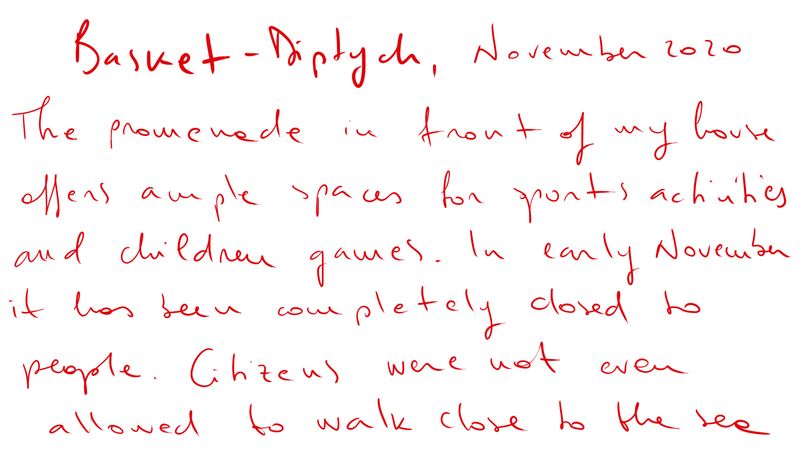 Basket-Diptych, November 2020
The promenade in front of my house
offers ample spaces for sports activities
and children games. In early November
it has been completely closed to
people. Citizens were not even
allowed to walk close to the sea